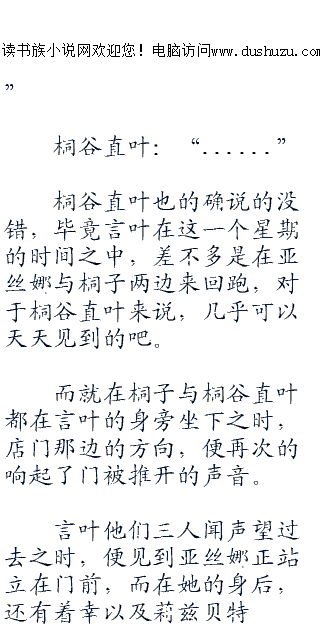 读书族小说网欢迎您！电脑访问www.dushuzu.com
”
桐谷直叶：“......”
桐谷直叶也的确说的没
错，毕竟言叶在这一个星期
的时间之中，差不多是在亚
丝娜与桐子两边来回跑，对
于桐谷直叶来说，几乎可以
天天见到的吧。
而就在桐子与桐谷直叶
都在言叶的身旁坐下之时，
店门那边的方向，便再次的
响起了门被推开的声音。
言叶他们三人闻声望过
去之时，便见到亚丝娜正站
立在门前，而在她的身后，
还有着幸以及莉兹贝特